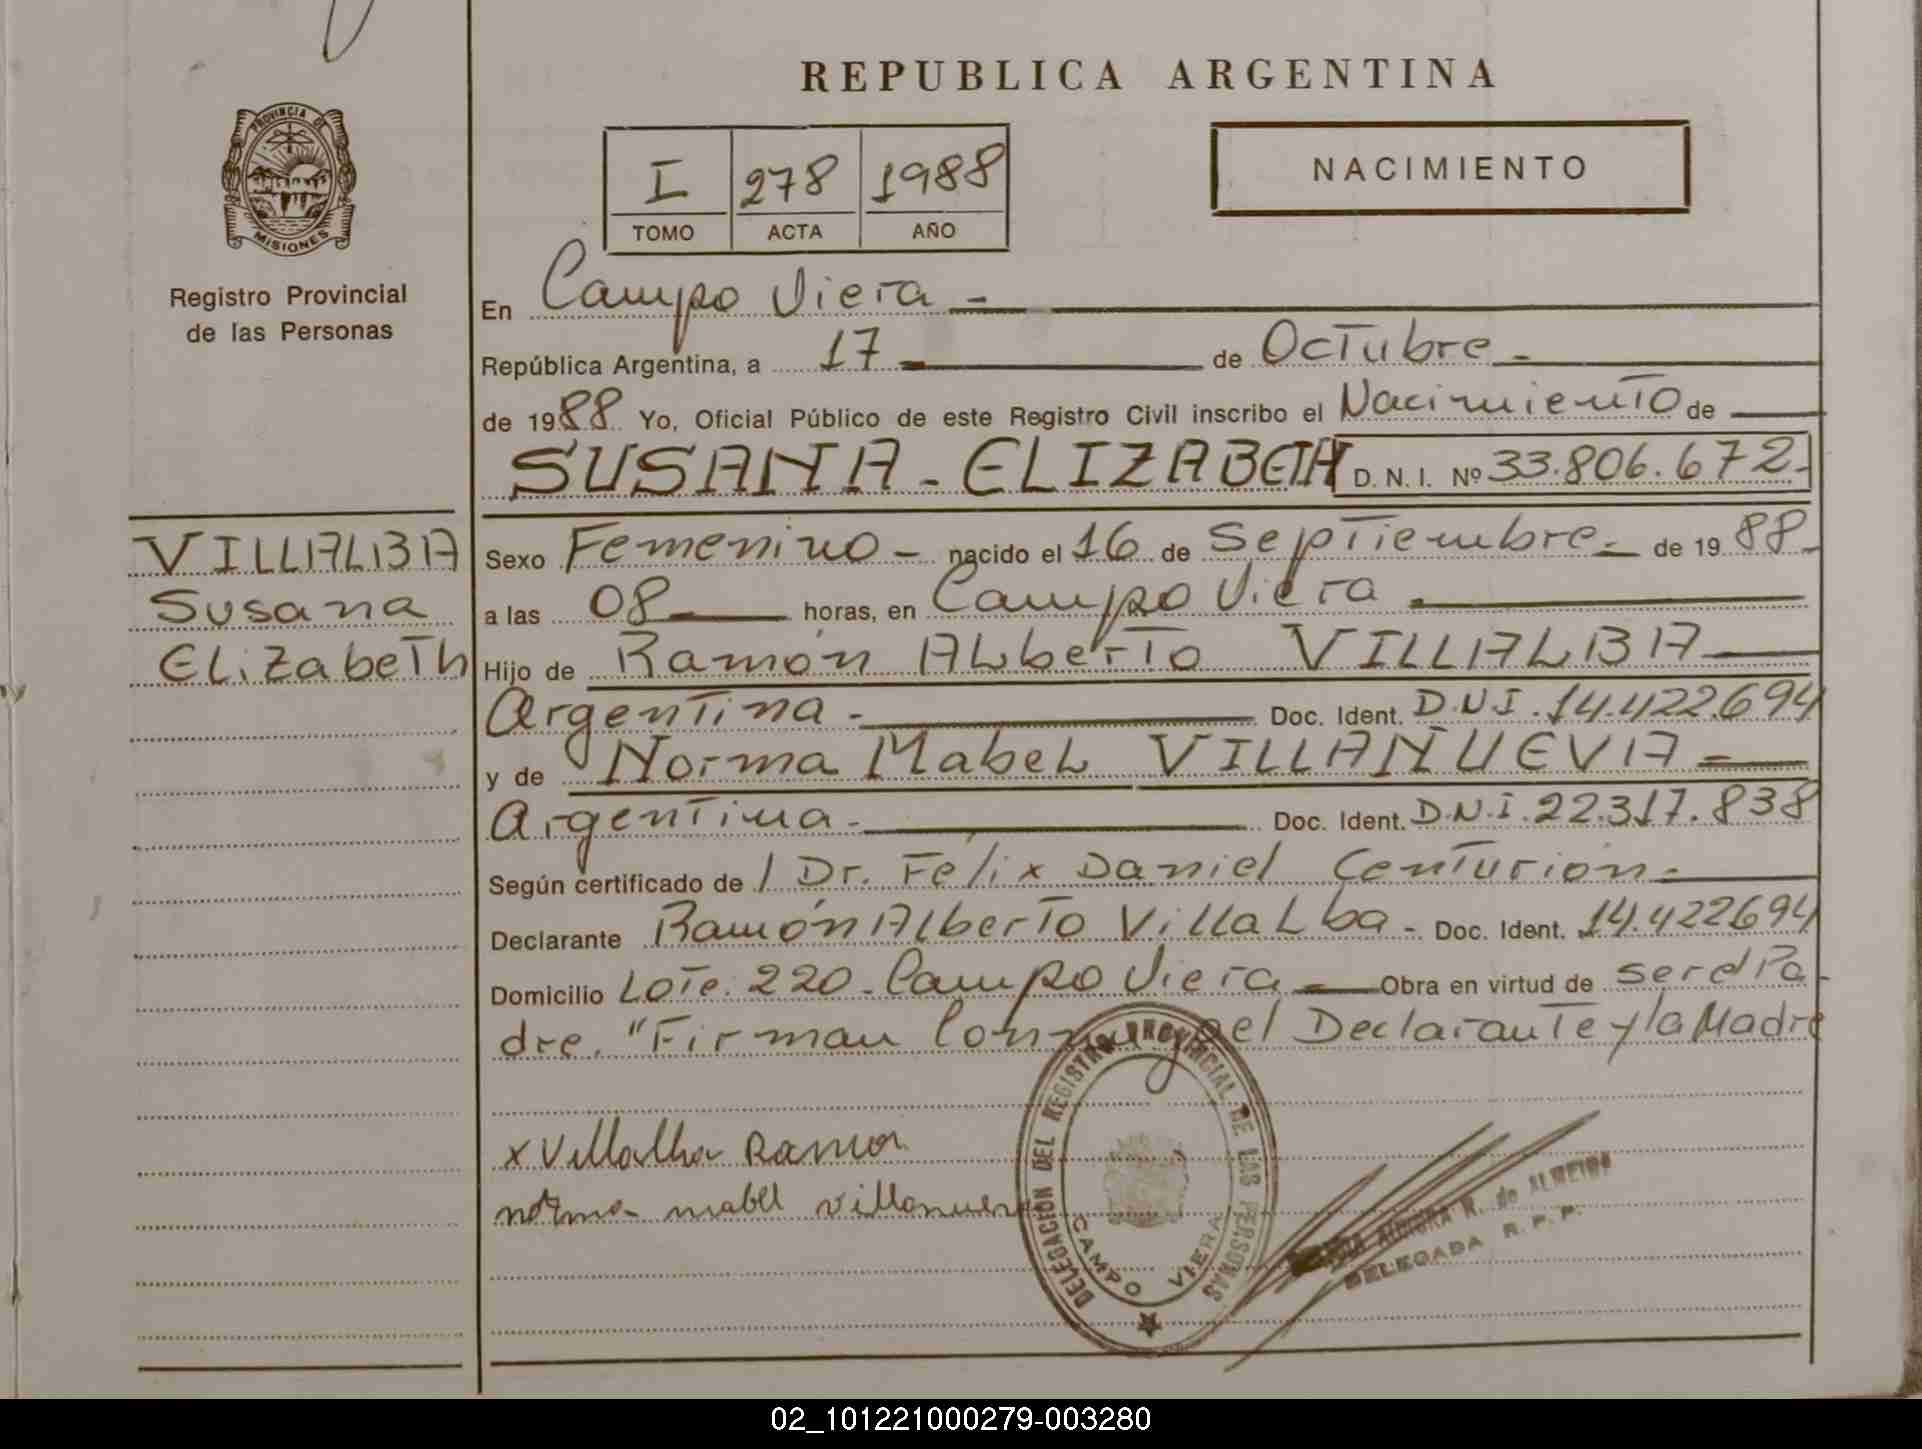 REPUBLICA ARGENTINA
PROVINCIA DE
MISIONES
Registro Provincial
de las Personas
I 278 1988
TOMO ACTA AÑO
NACIMIENTO
En Campo Viera -
República Argentina, a 17 de Octubre -
de 1988 Yo, Oficial Público de este Registro Civil inscribo el Nacimiento de
SUSANA - ELIZABETH D. N. I. Nº 33.806.672-
VILLALBA
Susana
Elizabeth
Sexo Femenino - nacido el 16 de Septiembre - de 1988-
a las 08 horas, en Campo Viera
Hijo de Ramón Alberto VILLALBA
Argentina - Doc. Ident. D.N.I. 14.422.694
y de Norma Mabel VILLANUEVA -
Argentina - Doc. Ident. D.N.I. 22.317.838
Según certificado de / Dr. Félix Daniel Centurión -
Declarante Ramón Alberto Villalba - Doc. Ident. 14.422694
Domicilio Lote. 220 - Campo Viera - Obra en virtud de ser el Pa-
dre. "Firman Conmigo el Declarante y la Madre
x Villalba Ramon
norma mabel villanueva
DELEGACION DEL REGISTRO PROVINCIAL DE LAS PERSONAS
CAMPO VIERA
R. de ALMEIDA
DELEGADA R. P. P.
02_101221000279-003280